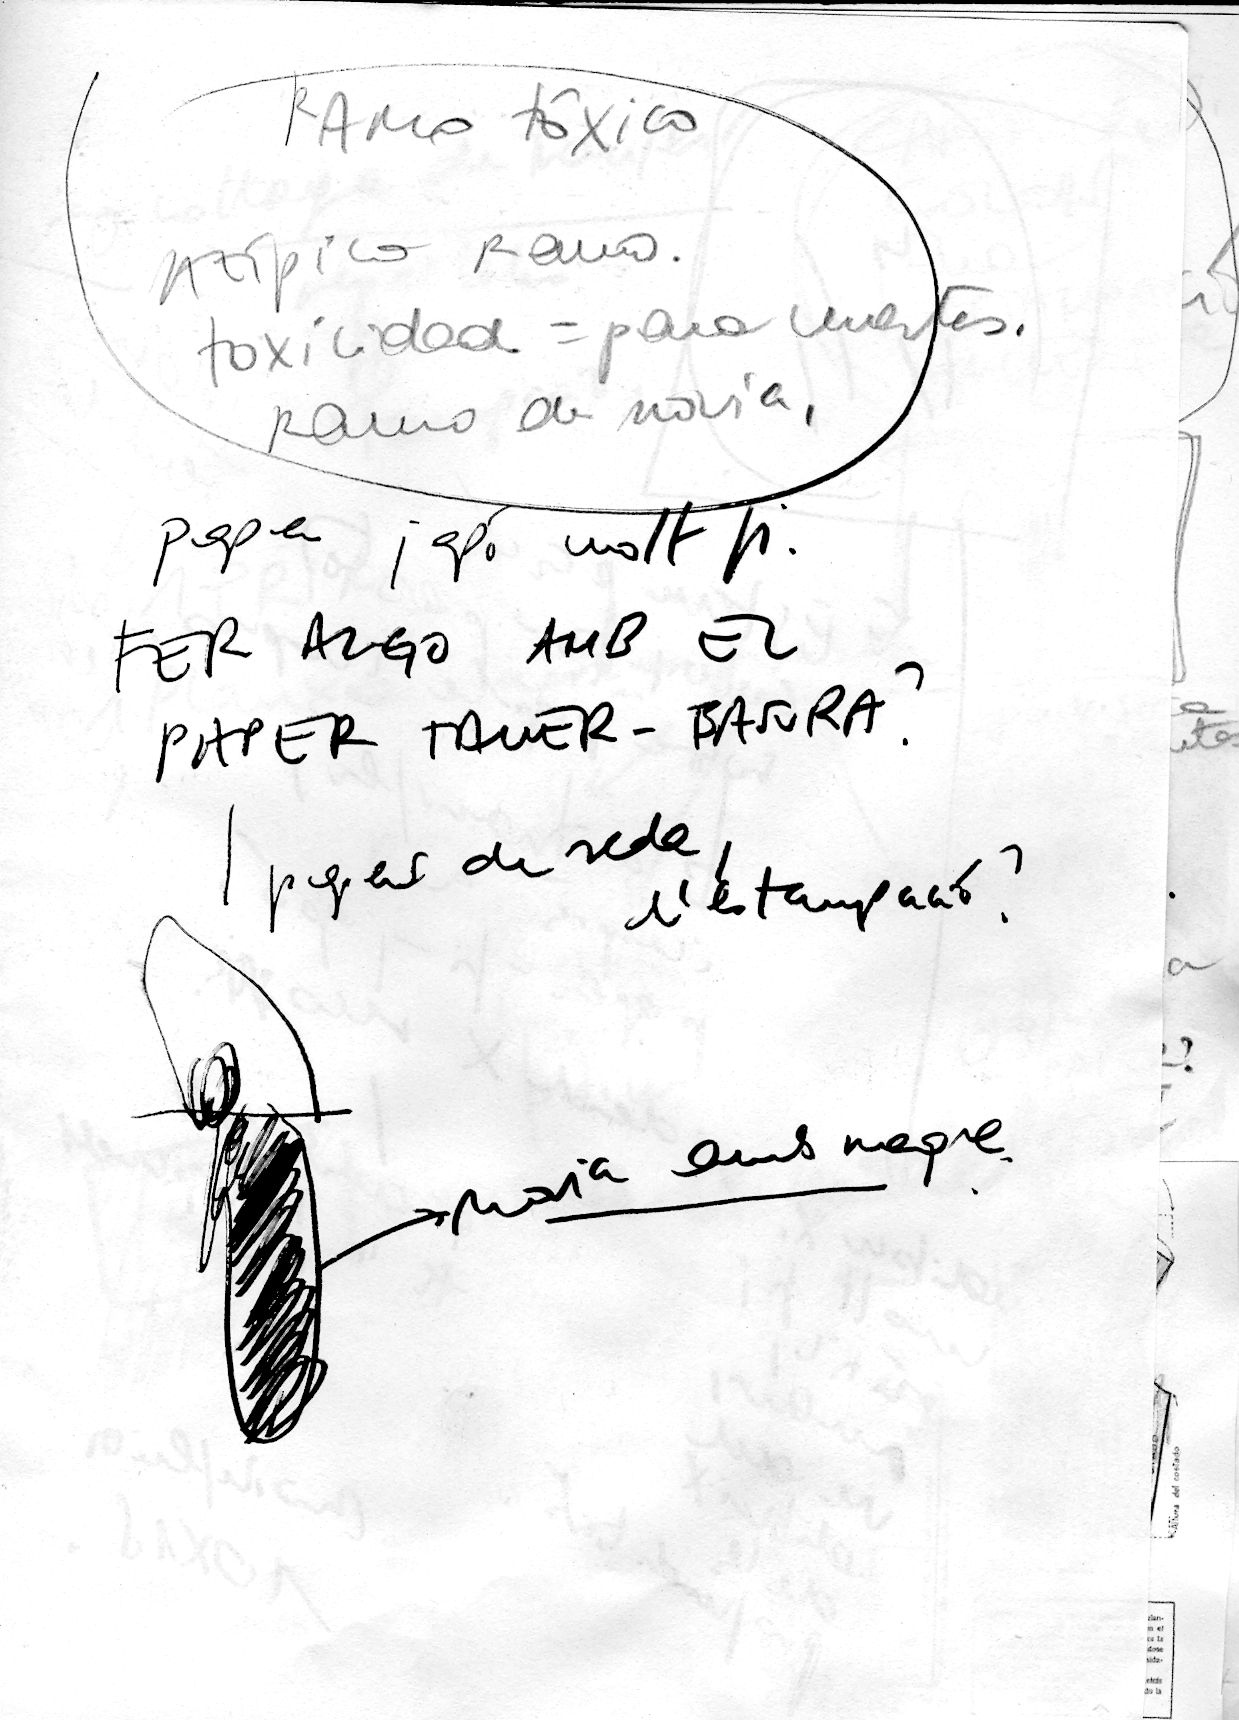 RAMO tóxico
atípico ramo.
toxicidad = para muertos.
ramo de novia.
paper japó molt fi.
FER ALGO AMB EL
PAPER TALLER - BASURA?
papers de seda,
d'estampació?
novia
negre.
Altura del costado